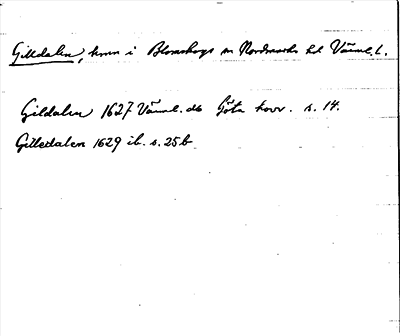 Gilldalen, hmn i Blomskogs sn Nordmarks hd Värml. l.
Gildalen 1627 Värml. db Göta hovr. s. 14.
Gilledalen 1629 ib. s. 25b